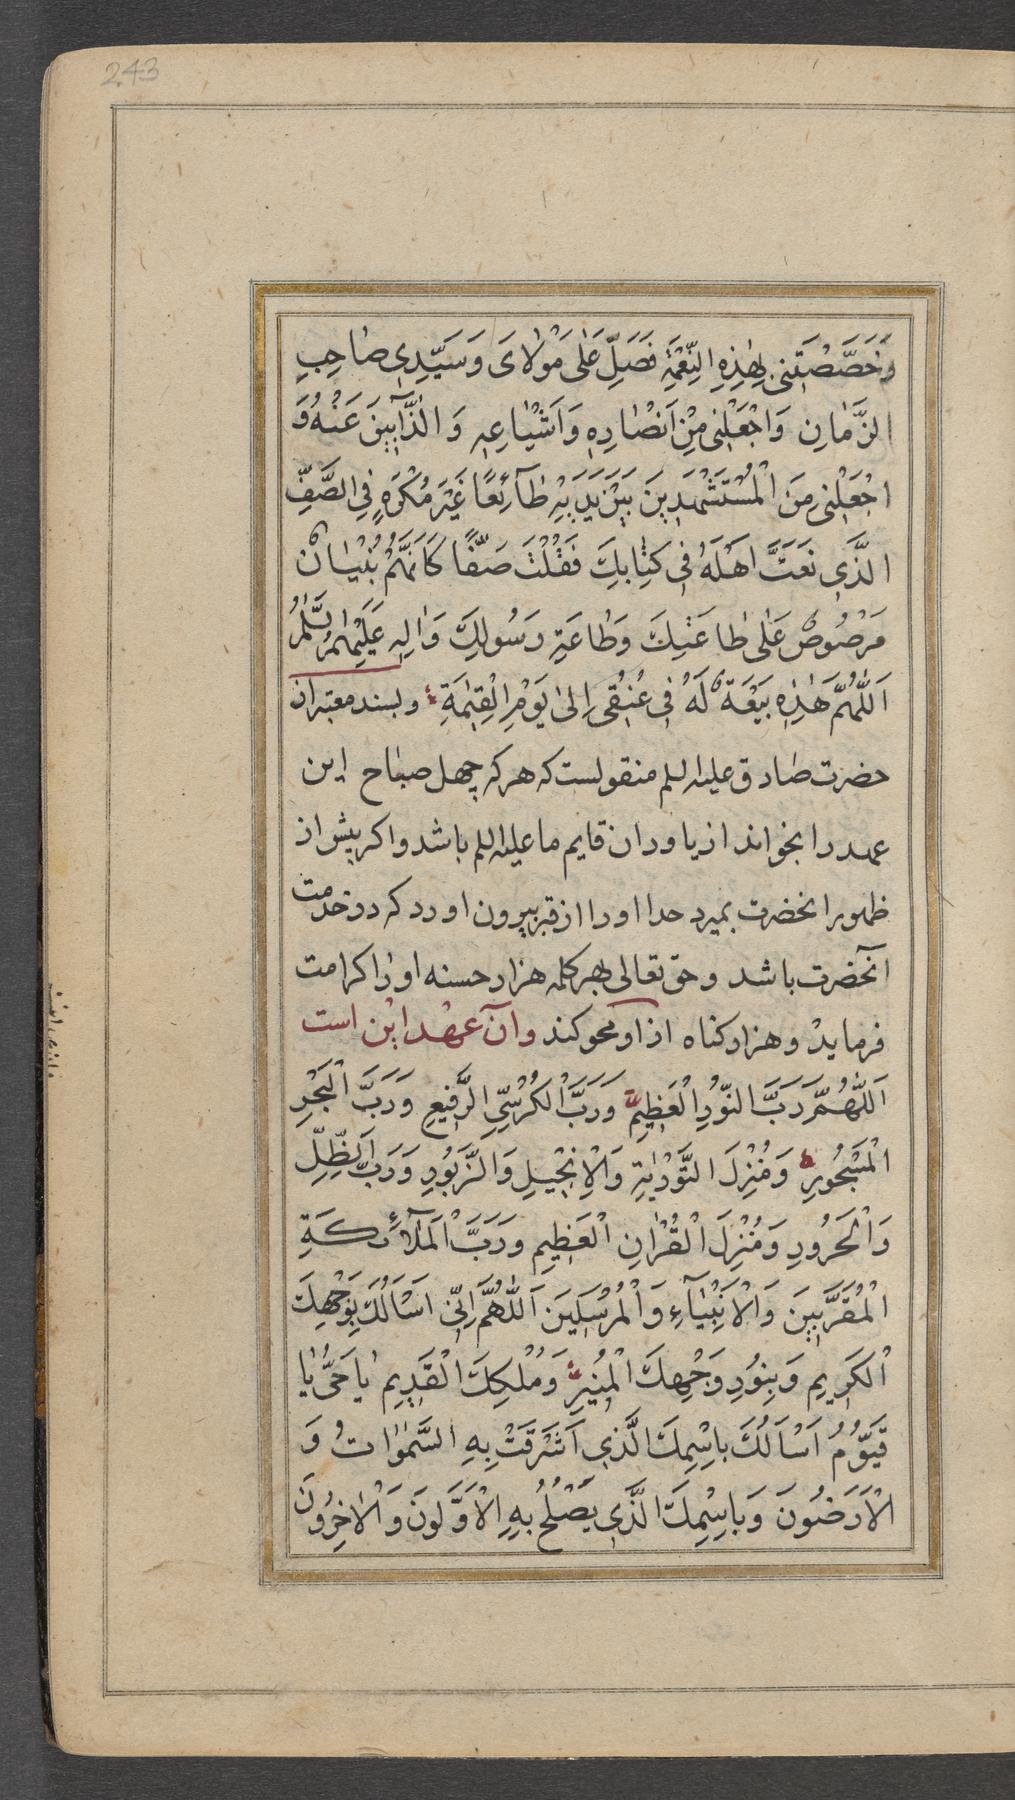 243
وَخَصَّصْتَنِی بِهٰذِهِ النِّعْمَةِ فَصَلِّ عَلٰی مَوْلَایَ وَسَیِّدِی صَاحِبِ
الزَّمَانِ وَاجْعَلْنِی مِنْ اَنْصَارِهِ وَاَشْیَاعِهِ وَالذَّآبِّینَ عَنْهُ وَ
اجْعَلْنِی مِنَ الْمُسْتَشْهَدِینَ بَیْنَ یَدَیْهِ طَآئِعًا غَیْرَ مُکْرَهٍ فِی الصَّفِّ
الَّذِی نَعَتَّ اَهْلَهُ فِی کِتَابِكَ فَقُلْتَ صَفًّا کَاَنَّهُمْ بُنْیَانٌ
مَرْصُوصٌ عَلٰی طَاعَتِكَ وَطَاعَةِ رَسُولِكَ وَاٰلِهِ عَلَیْهِمُ السَّلَامُ
اَللّٰهُمَّ هٰذِهِ بَیْعَةٌ لَهُ فِی عُنُقِی اِلٰی یَوْمِ الْقِیٰمَةِ وبسند معتبر از
حضرت صادق علیه السلم منقولست که هر که چهل صباح این
عهد را بخواند از یاوران قایم ما علیه السلم باشد واکر پیش از
ظهور انحضرت بمیرد خدا اورا از قبر بیرون اورد که در خدمت
آنحضرت باشد وحق تعالی بهر کلمه هزار حسنه اورا کرامت
فرماید وهزار کناه از او محو کند وآن عهد این است
اَللّٰهُمَّ رَبَّ النُّورِ الْعَظِیمِ وَرَبَّ الْکُرْسِیِّ الرَّفِیعِ وَرَبَّ الْبَحْرِ
الْمَسْجُورِ وَمُنْزِلَ التَّوْرٰیةِ وَالْاِنْجِیلِ وَالزَّبُورِ وَرَبَّ الظِّلِّ
وَالْحَرُورِ وَمُنْزِلَ الْقُرْاٰنِ الْعَظِیمِ وَرَبَّ الْمَلَآئِکَةِ
الْمُقَرَّبِینَ وَالْاَنْبِیَآءِ وَالْمُرْسَلِینَ اَللّٰهُمَّ اِنِّی اَسْاَلُكَ بِوَجْهِكَ
الْکَرِیمِ وَبِنُورِ وَجْهِكَ الْمُنِیرِ وَمُلْکِكَ الْقَدِیمِ یَا حَیُّ یَا
قَیُّومُ اَسْاَلُكَ بِاسْمِكَ الَّذِی اَشْرَقَتْ بِهِ السَّمٰوَاتُ وَ
الْاَرَضُونَ وَبِاسْمِكَ الَّذِی یَصْلَحُ بِهِ الْاَوَّلُونَ وَالْاٰخِرُونَ